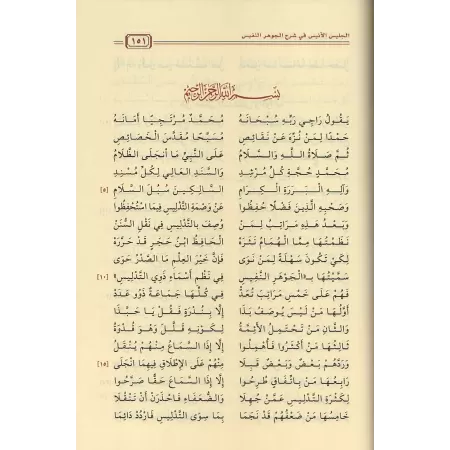 الجليس الأنيس في شرح الجوهر النفيس
١٥١
بسم الله الرحمن الرحيم
يَقُولُ رَاجِي رَبِّهِ سُبْحَانَهُ مُحَمَّدٌ مُرْتَجِيًا أَمَانَهُ
حَمْدًا لِمَنْ نُزِّهَ عَنْ نَقَائِصِ مُسَبِّحًا مُقَدَّسَ الْخَصَائِصِ
ثُمَّ صَلَاةُ اللهِ وَالسَّلَامُ عَلَى النَّبِيِّ مَا انْجَلَى الظَّلَامُ
مُحَمَّدٍ حُجَّةِ كُلِّ مُرْشِدِ وَالسَّنَدِ الْعَالِي لِكُلِّ مُسْنِدِ
وَآلِهِ الْبَرَرَةِ الْكِرَامِ السَّالِكِينَ سُبُلَ السَّلَامِ [٥]
وَصَحْبِهِ الَّذِينَ فَضْلًا حُفِظُوا عَنْ وَصْمَةِ التَّدْلِيسِ فِيمَا اسْتُحْفِظُوا
وَبَعْدُ هَذِهِ مَرَاتِبُ لِمَنْ وُصِفَ بِالتَّدْلِيسِ فِي نَقْلِ السُّنَنْ
نَظَمْتُهَا مِمَّا الْهُمَامُ نَثَرَهْ الْحَافِظُ ابْنُ حَجَرٍ قَدْ حَرَّرَهْ
لِكَيْ تَكُونَ سَهْلَةً لِمَنْ نَوَى فَإِنَّ خَيْرَ الْعِلْمِ مَا الصَّدْرُ حَوَى
سَمَّيْتُهَا بِـ«الْجَوْهَرِ النَّفِيسِ فِي نَظْمِ أَسْمَاءِ ذَوِي التَّدْلِيسِ» [١٠]
فَهُمْ عَلَى خَمْسِ مَرَاتِبَ تُعَدْ فِي كُلِّهَا جَمَاعَةٌ ذَوُو عَدَدْ
أَوَّلُهَا مَنْ لَيْسَ يُوصَفُ بِذَا إِلَّا بِنُدْرَةٍ فَقُلْ يَا حَبَّذَا
وَالثَّانِ مَنْ تَحْتَمِلُ الْأَئِمَّةُ لِكَوْنِهِ قَلَّلَ وَهْوَ قُدْوَةُ
ثَالِثُهَا مَنْ أَكْثَرُوا فَأُهْمِلُوا إِلَّا إِذَا السَّمَاعُ مِنْهُمْ يُنْقَلُ
وَرَدَّهُمْ بَعْضٌ وَبَعْضٌ قَبِلَا مِنْهُمْ عَلَى الْإِطْلَاقِ فِيهِمَا انْجَلَى [١٥]
رَابِعُهَا مَنْ بِاتِّفَاقٍ طُرِحُوا إِلَّا إِذَا السَّمَاعَ حَقًّا صَرَّحُوا
لِكَثْرَةِ التَّدْلِيسِ عَمَّنْ جُهِلَا وَالضُّعَفَاءِ فَاحْذَرَنْ أَنْ تَنْقُلَا
خَامِسُهَا مَنْ ضَعْفُهُمْ قَدْ نَجَمَا بِمَا سِوَى التَّدْلِيسِ فَارْدُدْ دَائِمَا